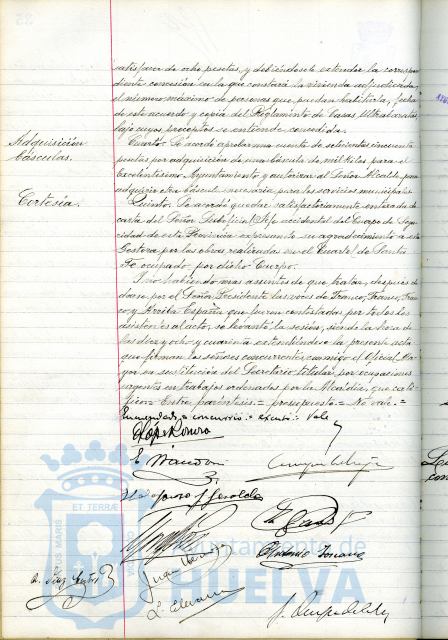 satisfacer de ocho pesetas, y debiéndosele extender la correspon
diente concesión en la que constará la vivienda adjudicada,
el número máximo de personas que puedan habitarla, fecha
de este acuerdo y copia del Reglamento de Casas Ultrabaratas
bajo cuyos preceptos se entiende concedida.
Adquisición
básculas.
Cuarto. Se acordó aprobar una cuenta de setecientas cincuenta
pesetas por adquisición de una báscula de mil kilos para el
Excelentísimo Ayuntamiento y autorizar al Señor Alcalde para
adquirir otra báscula necesaria para los servicios municipales.
Cortesía.
Quinto. Se acordó quedar satisfactoriamente enterada de
carta del Señor Jefe accidental del Cuerpo de Segu
ridad de esta Provincia expresando su agradecimiento a esta
Gestora por las obras realizadas en el Cuartel de
Fe ocupado por dicho Cuerpo.
Y no habiendo mas asuntos de que tratar, después de
darse por el Señor Presidente las voces de Franco, Franco, Fran
co y Arriba España que fueron contestadas por todos los
asistentes al acto, se levantó la sesión, siendo la hora de
las diez y ocho y cuarenta extendiéndose la presente acta
que firman los señores concurrentes conmigo el Oficial Ma
yor en sustitución del Secretario titular por ocupaciones
urgentes en trabajos ordenados por la Alcaldía, que certi
fico = Entre paréntesis = presupuesto = No vale =
Enmendado = concurrió = excusó = Vale
López Romero
ET TERRAE
Ayuntamiento de
HUELVA